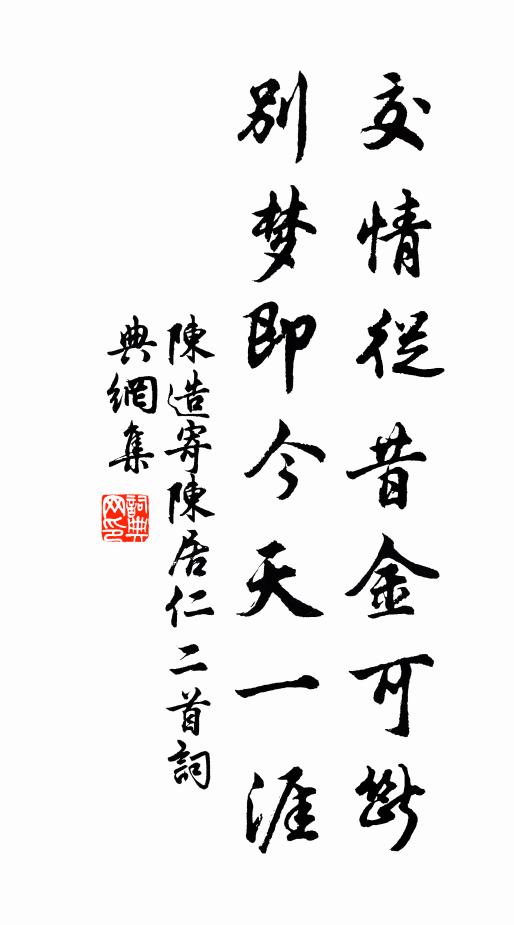 交情從昔金可斷
别梦即今天一涯
陳造寄陳居仁二首詞
典網集
詞典網印